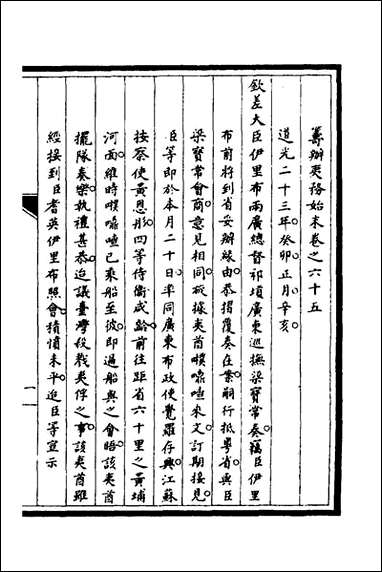 籌辦夷務始末卷之六十五
道光二十三年癸卯正月辛亥
欽差大臣伊里布兩廣總督祁𡎴廣東巡撫梁寶常奏竊臣伊里
布前將到省妥辦緣由恭摺覆奏在案嗣行抵粵省與臣
梁寶常會商意見相同祇據夷酋㗶㘃喳來文訂期接見
臣等即於本月二十日率同廣東布政使覺羅存興江蘇
按察使黃恩彤四等侍衛咸齡前往距省六十里之黃埔
河面維時㗶㘃喳已乘船至彼即過船與之會晤該夷酋
擺隊奏樂執禮甚恭迨議臺灣殺戮夷俘之事該夷酋雖
經接到臣耆英伊里布照會積憤未平迨臣等宣示
一